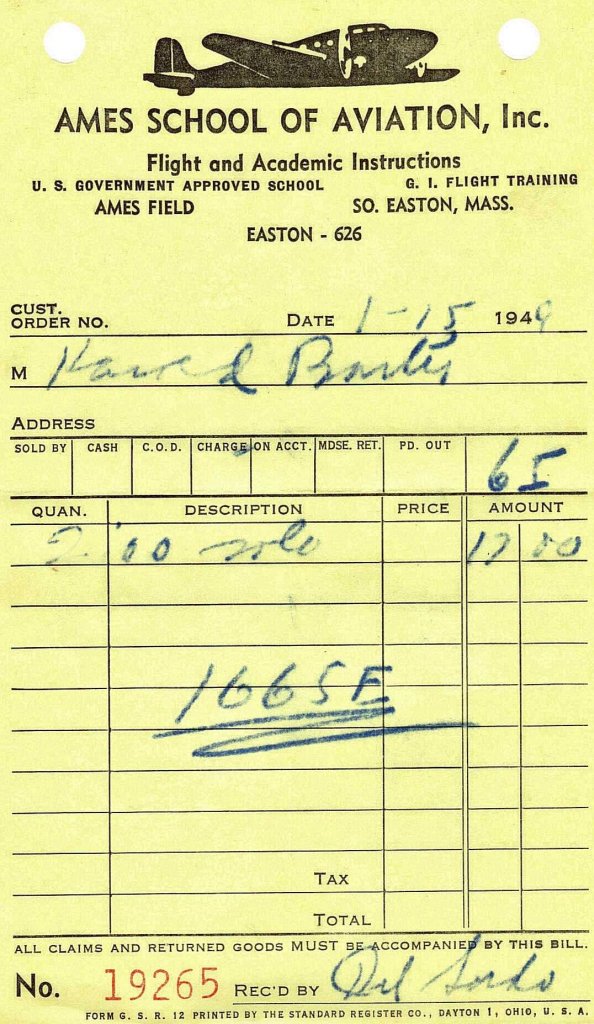 AMES SCHOOL OF AVIATION, Inc.
Flight and Academic Instructions
U. S. GOVERNMENT APPROVED SCHOOL G. I. FLIGHT TRAINING
AMES FIELD SO. EASTON, MASS.
EASTON - 626
CUST.
ORDER NO. DATE 1-15 1949
M
ADDRESS
SOLD BY CASH C.O.D. CHARGE ON ACCT. MDSE. RET. PD. OUT 65
QUAN. DESCRIPTION PRICE AMOUNT
2:00 solo 17 00
1665E
TAX
TOTAL
ALL CLAIMS AND RETURNED GOODS MUST BE ACCOMPANIED BY THIS BILL.
No. 19265 REC'D BY Del Sordo
FORM G. S. R. 12 PRINTED BY THE STANDARD REGISTER CO., DAYTON 1, OHIO, U. S. A.